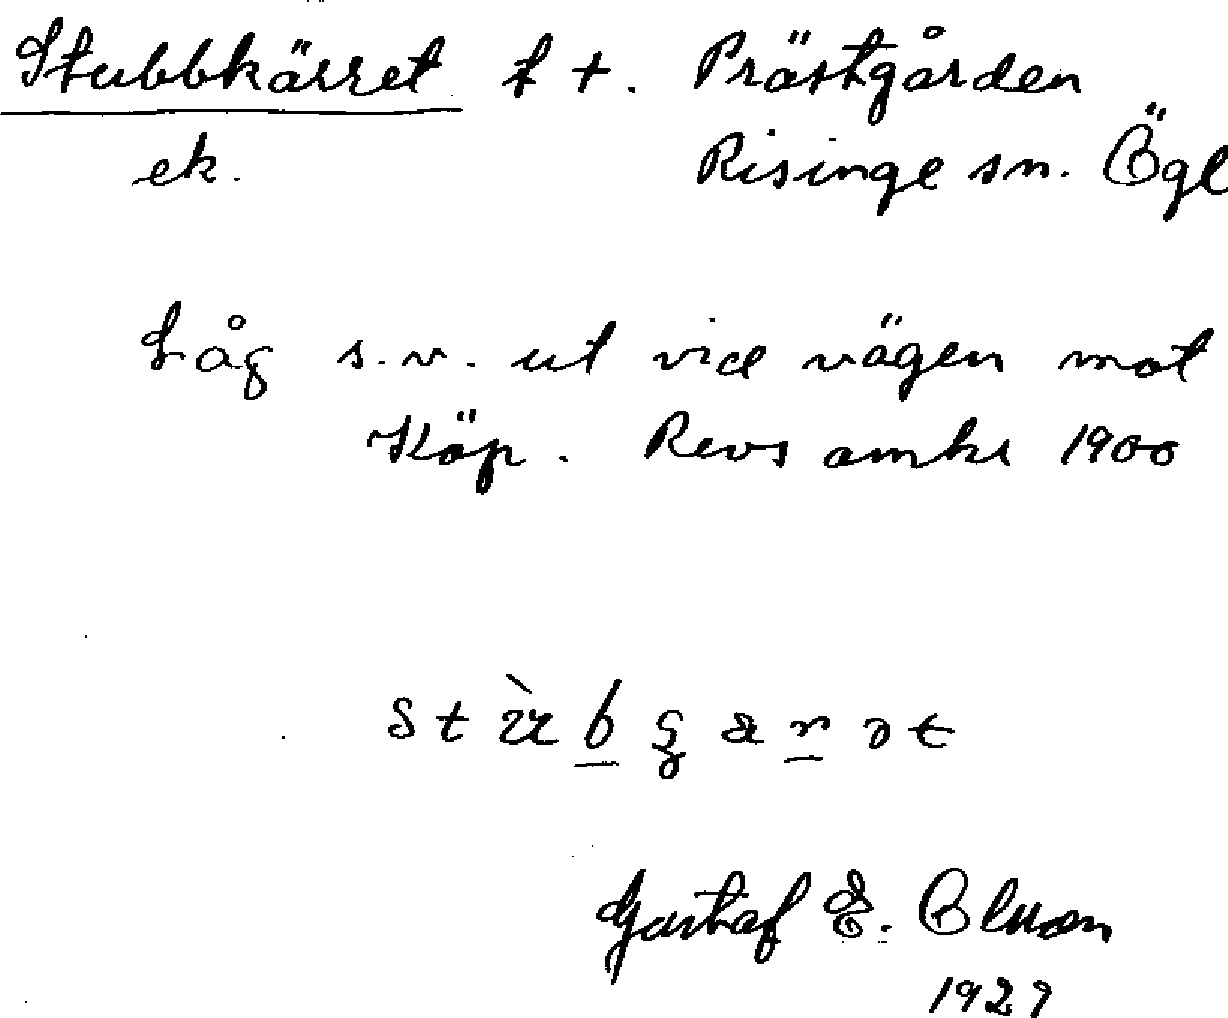 Stubbkärret f t. Prästgården
ek. Risinge sn. Ögl
Låg s.v. ut vid vägen mot
Köp. Revs omkr 1900
Gustaf E. Olsson
1929